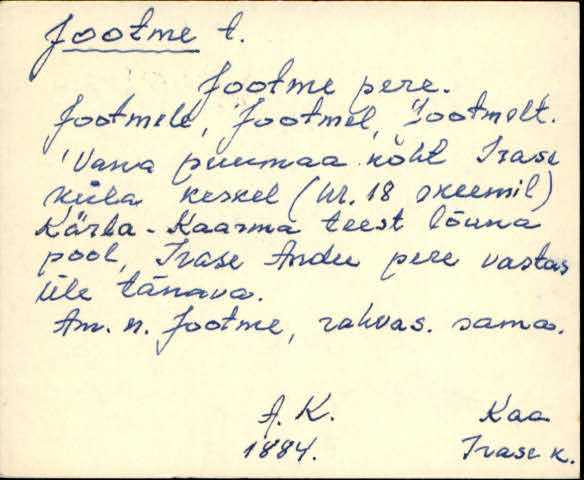 Jootme t.
Jootme pere.
Jootmele, Jootmel, Jootmelt.
Vana puumaa koht Irase
küla keskel (Nr. 18 skeemil)
Kärla - Kaarma teest lõuna
pool, Irase Andu pere vastas
üle tänava.
Am. n. Jootme, rahvas. sama.
A. K. Kaa
1884. Irase k.